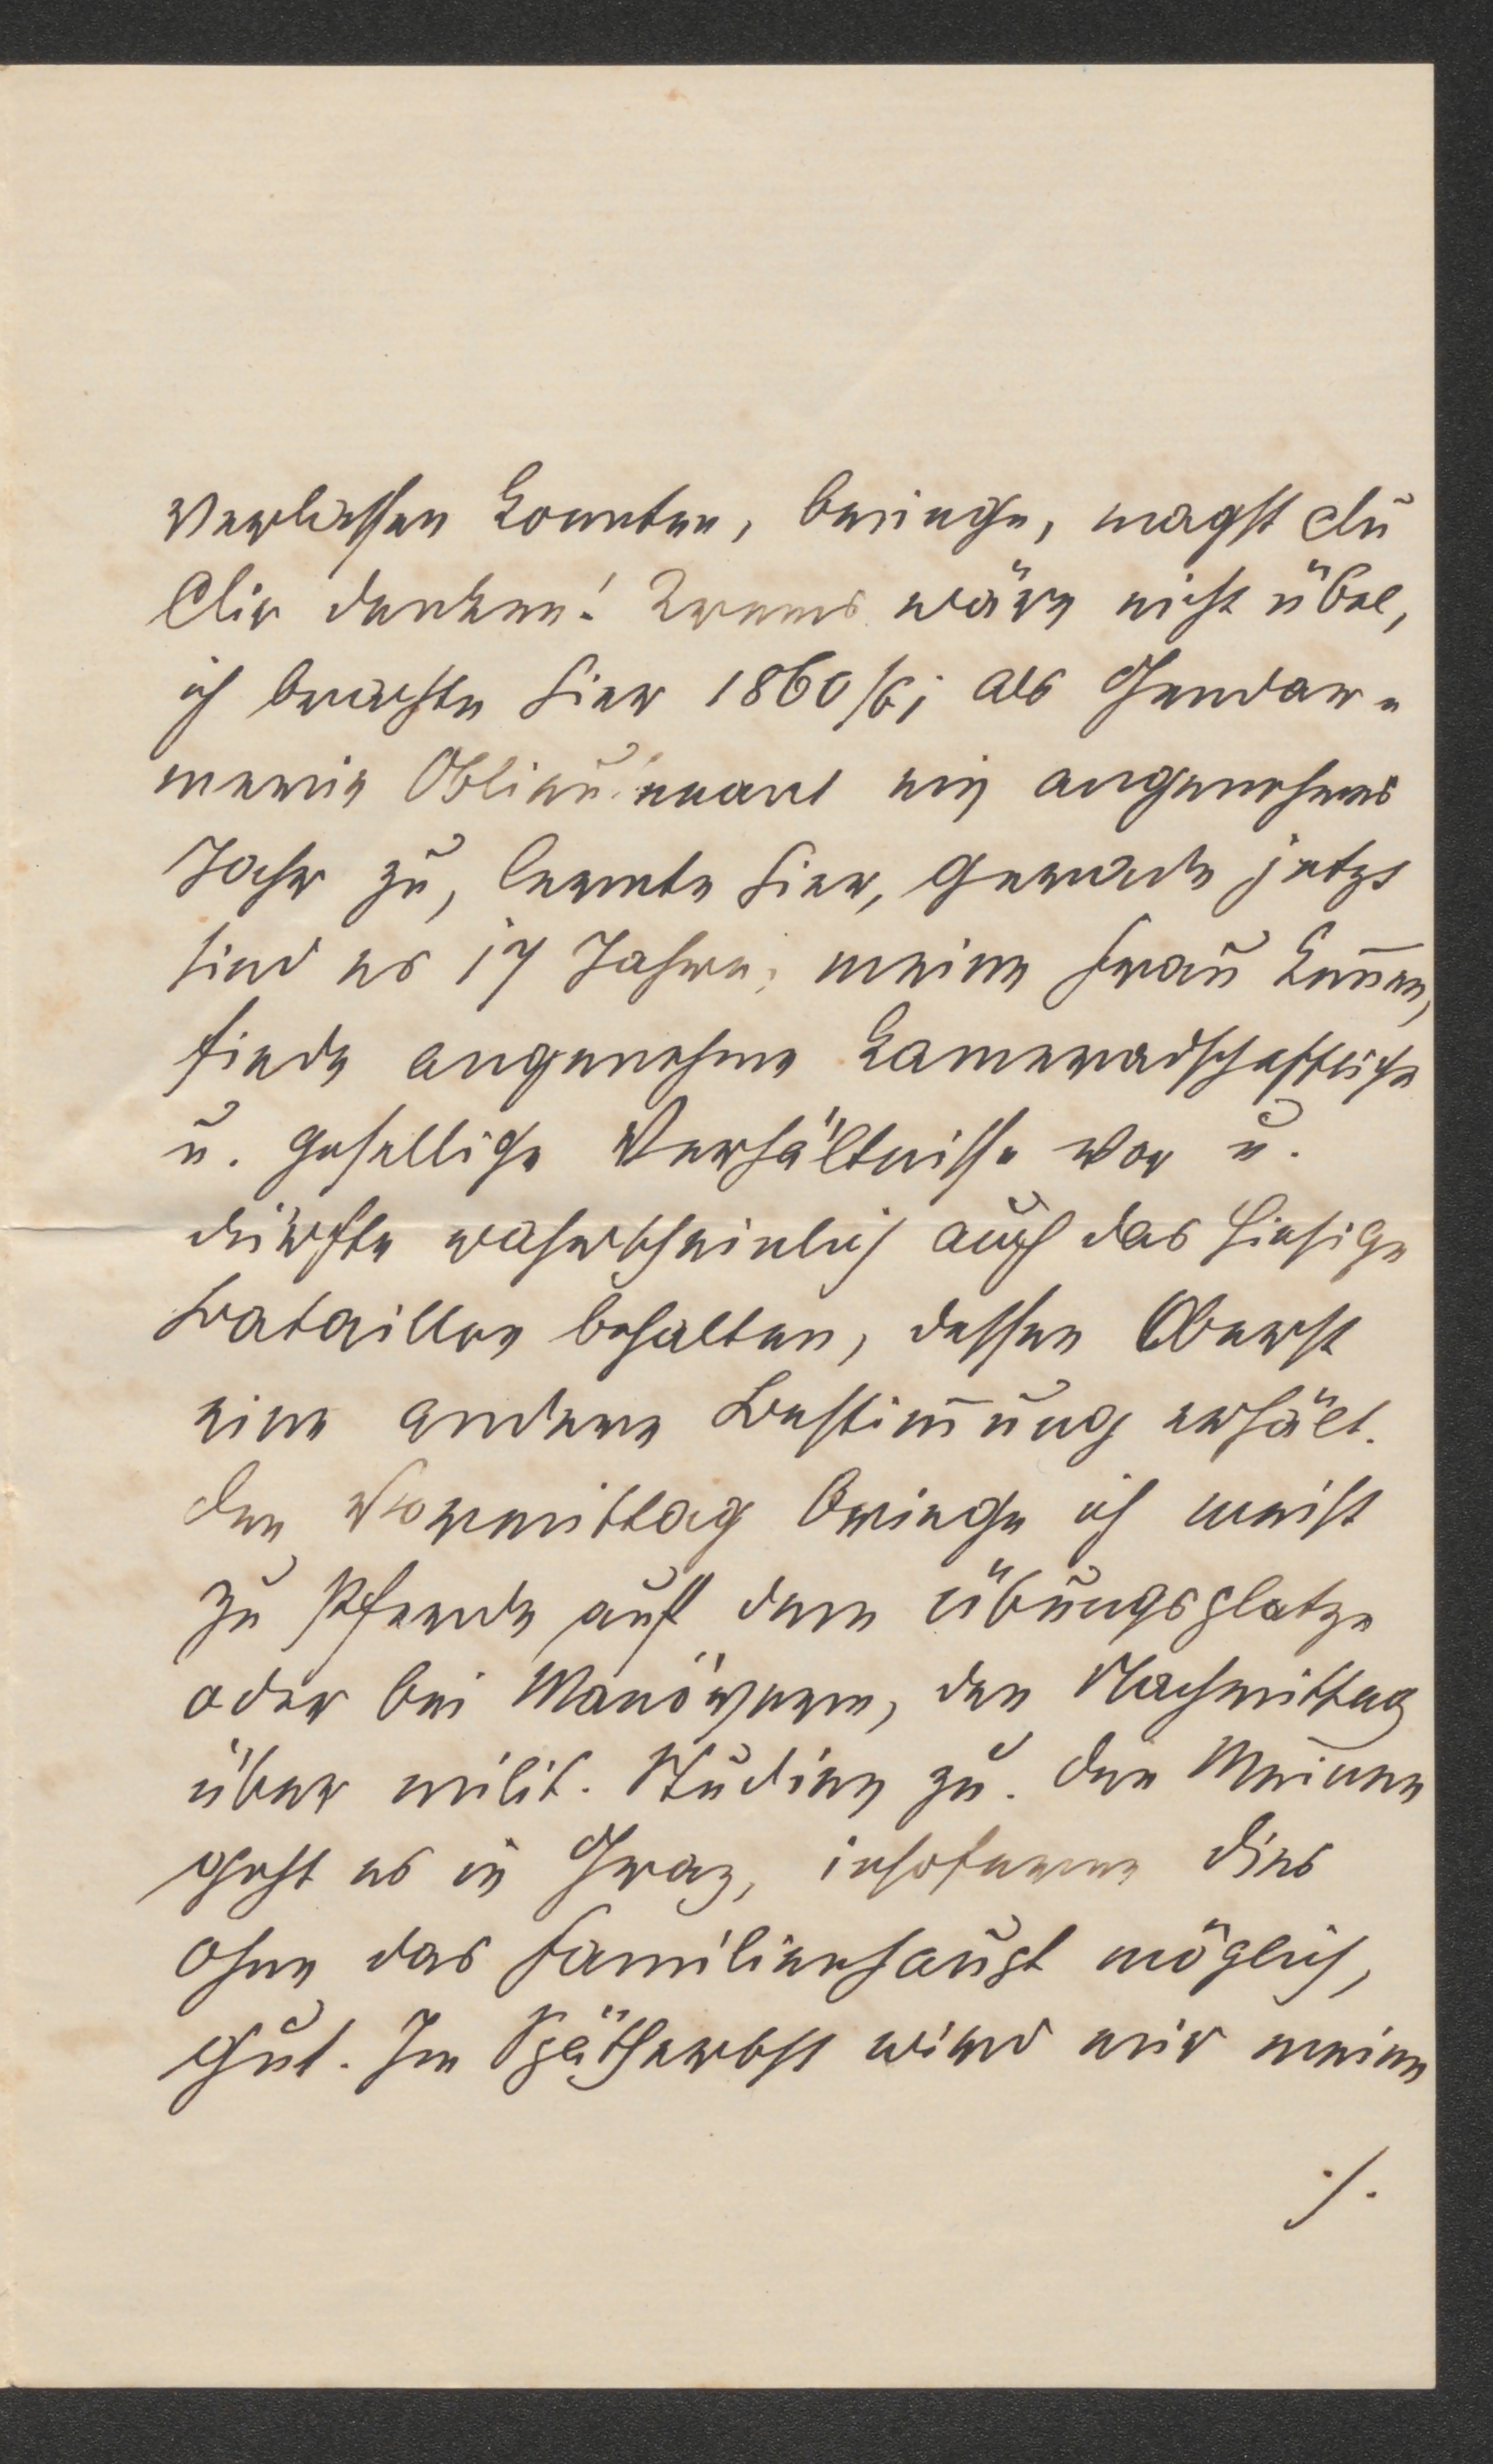 verlassen konnten, bringe, magst Du
Dir denken! Krems wäre nicht übel,
ich brachte hier 1860/61 als Gendar-
merie Oblieutenant ein angenehmes
Jahr zu, lernte hier, gerade jetzt
sind es 17 Jahre, meine Frau kennen,
finde angenehme kameradschaftliche
u. gesellige Verhältnisse vor u.
dürfte wahrscheinlich auch das hiesige
Bataillon behalten, dessen Oberst
eine andere Bestim̅ung erhält.
Den Vormittag bringe ich meist
zu Pferde auf dem Übungsplatze
oder bei Manövern, den Nachmittag
über milit. Studien zu. Den Meinen
geht es in Graz, insoferne dies
ohne das Familienhaupt möglich,
gut. Im Spätherbst wird mir meine
./.